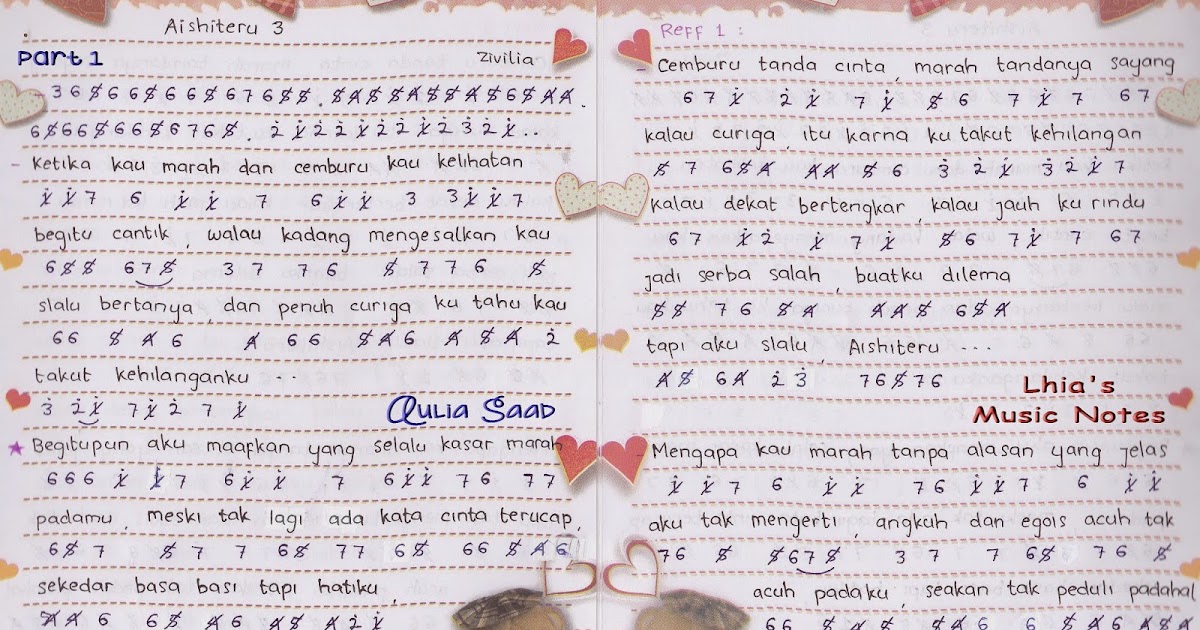 Aishiteru 3
Part 1
Zivilia
- 3 6 5̸ 6 6 5̸ 6 6 5̸ 6 7 6 5̸ 5̸ . 5̸ 4̸ 5̸ 5̸ 4̸ 5̸ 5̸ 4̸ 5̸ 6 5̸ 4̸ 4̸ .
6 5̸ 6 6 5̸ 6 6 5̸ 6 7 6 5̸ . 2̇ 1̸̇ 2̇ 2̇ 1̸̇ 2̇ 2̇ 1̸̇ 2̇ 3̇ 2̇ 1̸̇ . .
- Ketika kau marah dan cemburu kau kelihatan
1̸̇ 1̸̇ 7 6 1̸̇ 1̸̇ 7 6 1̸̇ 1̸̇ 3 3 1̸̇ 1̸̇ 7
begitu cantik, walau kadang mengesalkan kau
6 5̸ 5̸ 6 7 5̸ 3 7 7 6 5̸ 7 7 6 5̸
slalu bertanya, dan penuh curiga ku tahu kau
6 6 5̸ 4̸ 6 4̸ 6 6 5̸ 4̸ 6 4̸ 5̸ 4̸ 2̇
takut kehilanganku ...
3̇ 2̇ 1̸̇ 7 1̸̇ 2̇ 7 1̸̇
Aulia Saad
★ Begitupun aku maafkan yang selalu kasar marah
6 6 6 1̸̇ 1̸̇ 7 6 1̸̇ 1̸̇ 7 6 1̸̇ 1̸̇ 7 6 7 7
padamu, meski tak lagi ada kata cinta terucap,
6 5̸ 7 5̸ 7 7 6 5̸ 7 7 6 5̸ 6 6 5̸ 4̸ 6
sekedar basa basi tapi hatiku,
4̸ 4̸ 6 6 5̸ 4̸ 6 4̸ 5̸ 4̸ 2̇ 1̸̇
Reff 1 :
- Cemburu tanda cinta, marah tandanya sayang
6 7 1̸̇ 2̇ 1̸̇ 7 1̸̇ 5̸ 6 7 1̸̇ 7 6 7
kalau curiga, itu karna ku takut kehilangan
5̸ 7 6 5̸ 4̸ 4̸ 4̸ 5̸ 6 3̇ 2̇ 1̸̇ 3̇ 2̇ 1̸̇ 7
kalau dekat bertengkar, kalau jauh ku rindu
6 7 1̸̇ 2̇ 1̸̇ 7 1̸̇ 5̸ 6 7 1̸̇ 7 6 7
jadi serba salah, buatku dilema
5̸ 5̸ 7 6 5̸ 4̸ 4̸ 4̸ 5̸ 6 5̸ 4̸
tapi aku slalu, Aishiteru ...
4̸ 5̸ 6 4̸ 2̇ 3̇ 7 6 5̸ 7 6
Lhia's
Music Notes
- Mengapa kau marah tanpa alasan yang jelas
1̸̇ 1̸̇ 7 6 1̸̇ 1̸̇ 7 6 1̸̇ 1̸̇ 7 6 1̸̇ 1̸̇
aku tak mengerti, angkuh dan egois acuh tak
7 6 5̸ 5̸ 6 7 5̸ 3 7 7 6 5̸ 7 6 5̸
acuh padaku, seakan tak peduli padahal
6 6 5̸ 4̸ 4̸ 5̸ 4̸ 6 6 5̸ 4̸ 6 4̸ 5̸ 4̸